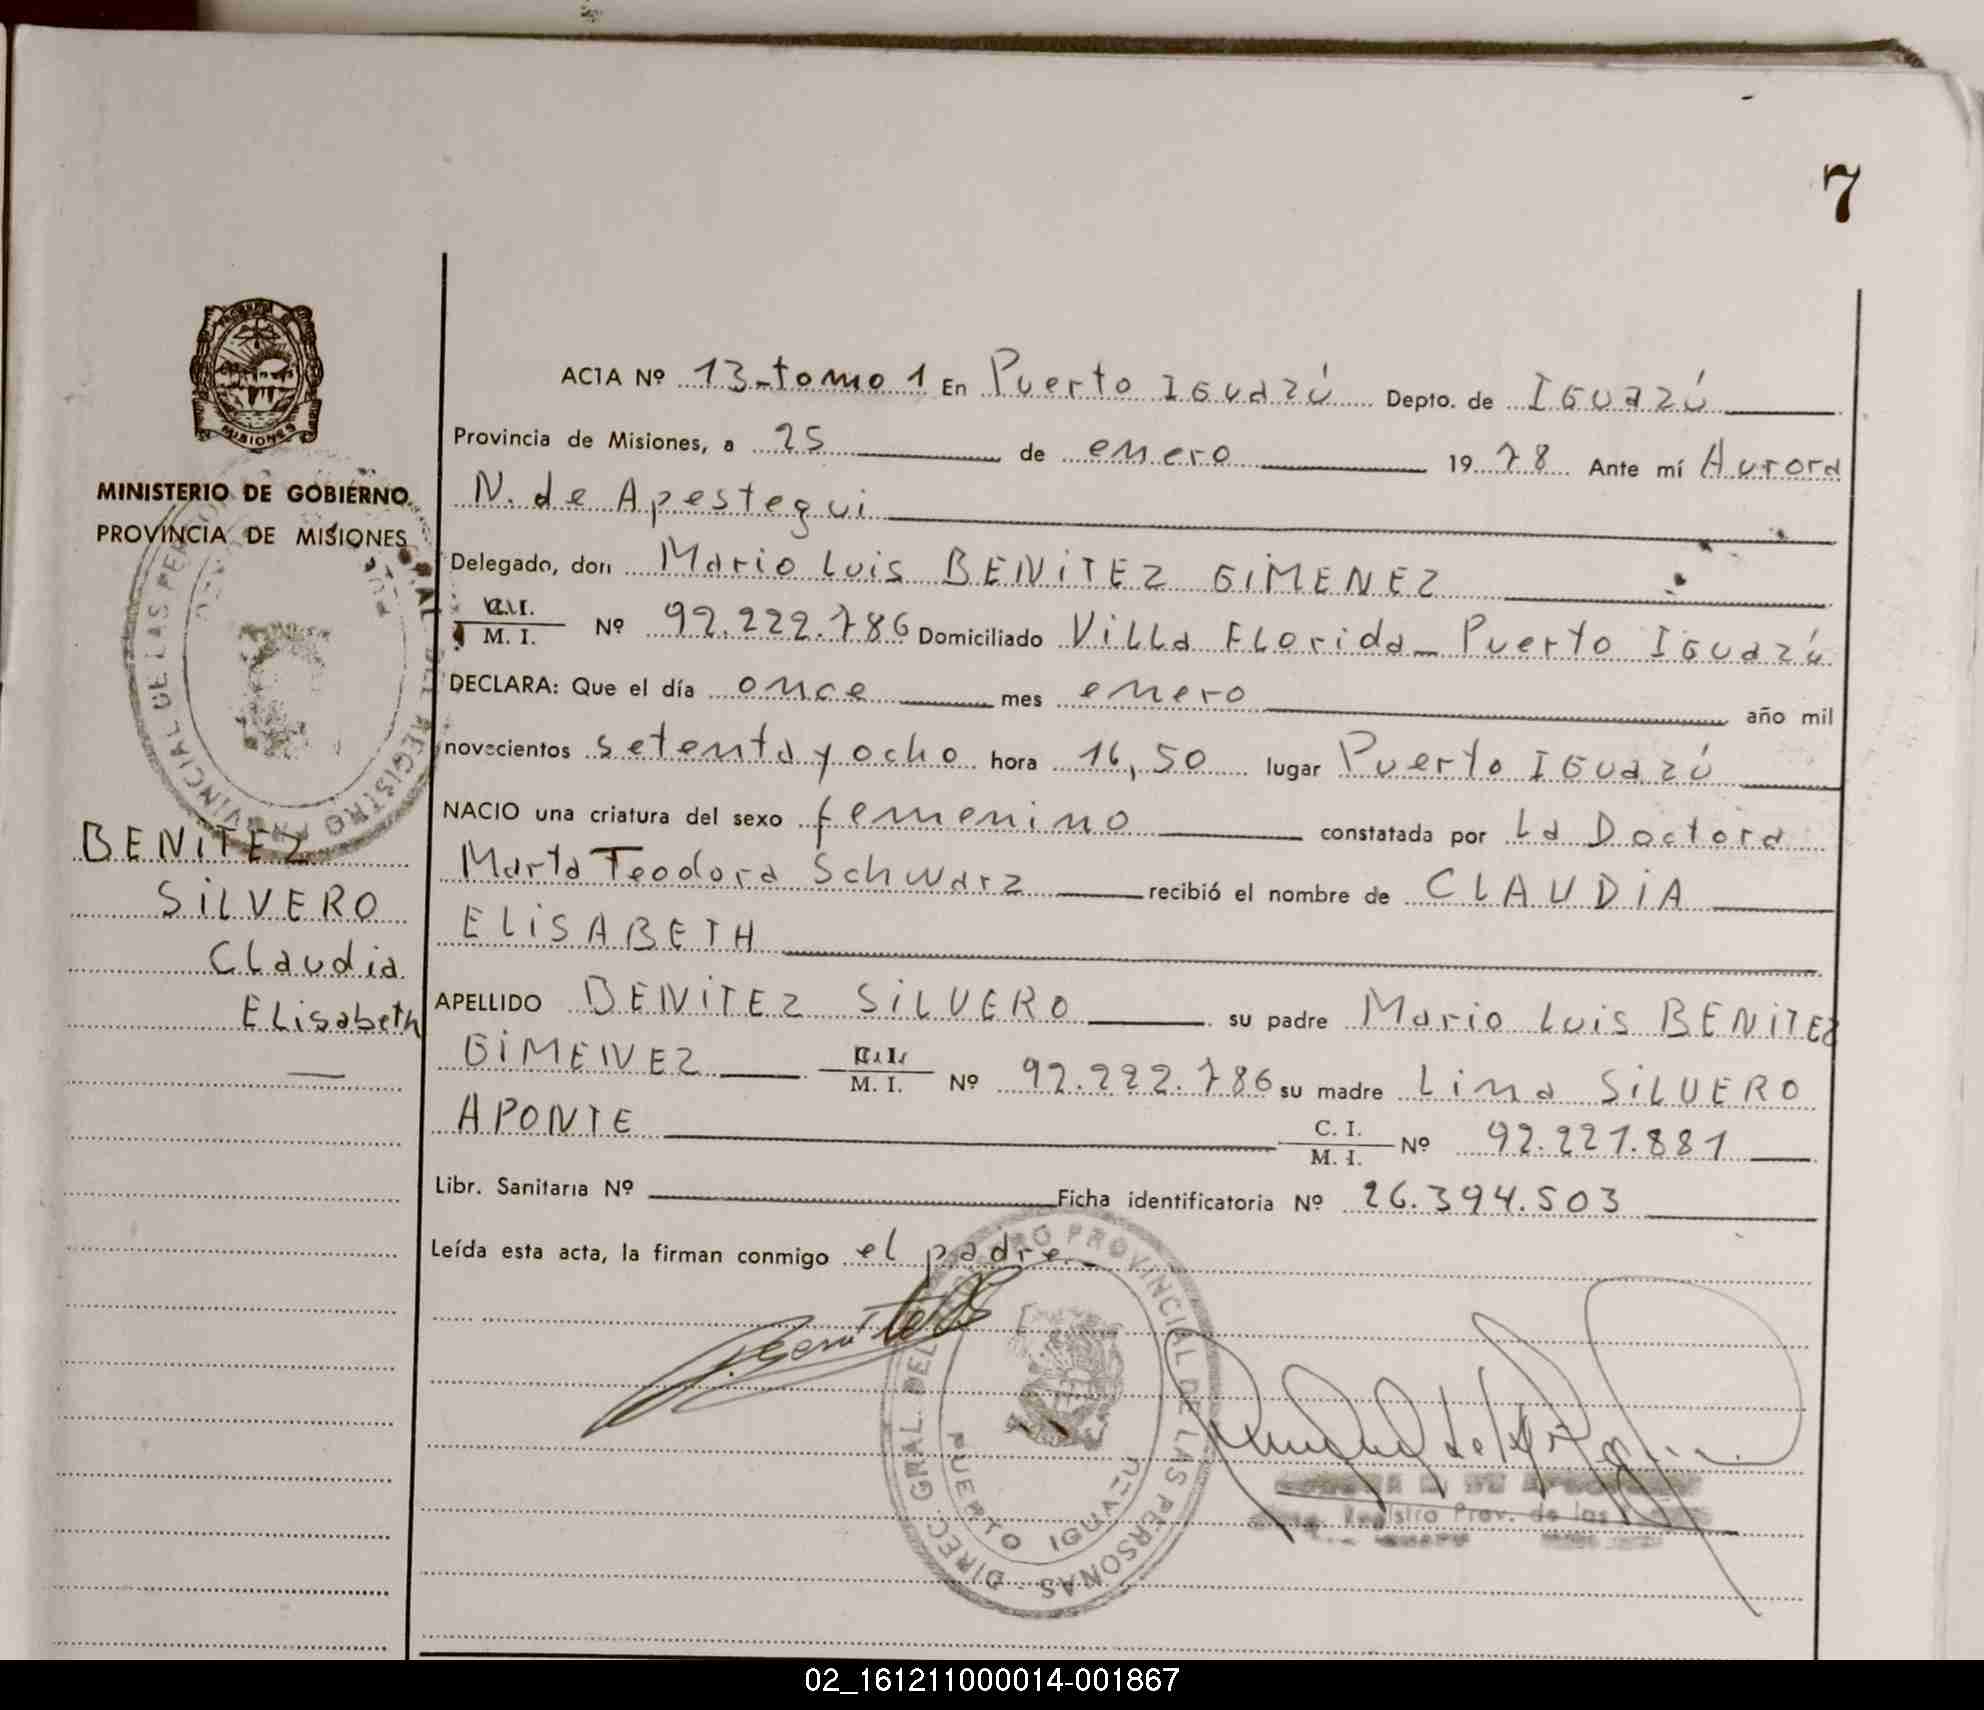 7
MISIONES
MINISTERIO DE GOBIERNO
PROVINCIA DE MISIONES
BENITEZ
SILVERO
Claudia
Elisabeth
ACTA Nº 13-tomo 1 En Puerto Iguazú Depto. de Iguazú
Provincia de Misiones, a 25 de enero 1978 Ante mí Aurora
N. de Apestegui
Delegado, don Mario Luis BENITEZ GIMENEZ
C.I.
M. I. Nº 92.222.786 Domiciliado Villa Florida - Puerto Iguazú
DECLARA: Que el día once mes enero año mil
novecientos setenta y ocho hora 16,50 lugar Puerto Iguazú
NACIO una criatura del sexo femenino constatada por La Doctora
Marta Teodora Schwarz recibió el nombre de CLAUDIA
ELISABETH
APELLIDO BENITEZ SILVERO su padre Mario Luis BENITEZ
GIMENEZ C.I. M. I. Nº 92.222.786 su madre Lina SILVERO
APONTE C. I. M. I. Nº 92.221.881
Libr. Sanitaria Nº Ficha identificatoria Nº 26.394.503
Leída esta acta, la firman conmigo el padre.
DIREC. GRAL. DEL REGISTRO PROVINCIAL DE LAS PERSONAS
PUERTO IGUAZU
Registro Prov. de las
02_161211000014-001867